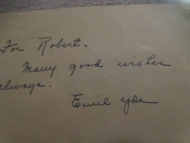 For Robert.
Many good wishes
always.
Emil